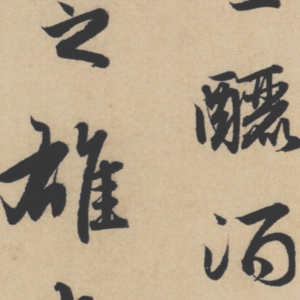 釃酒
之雄